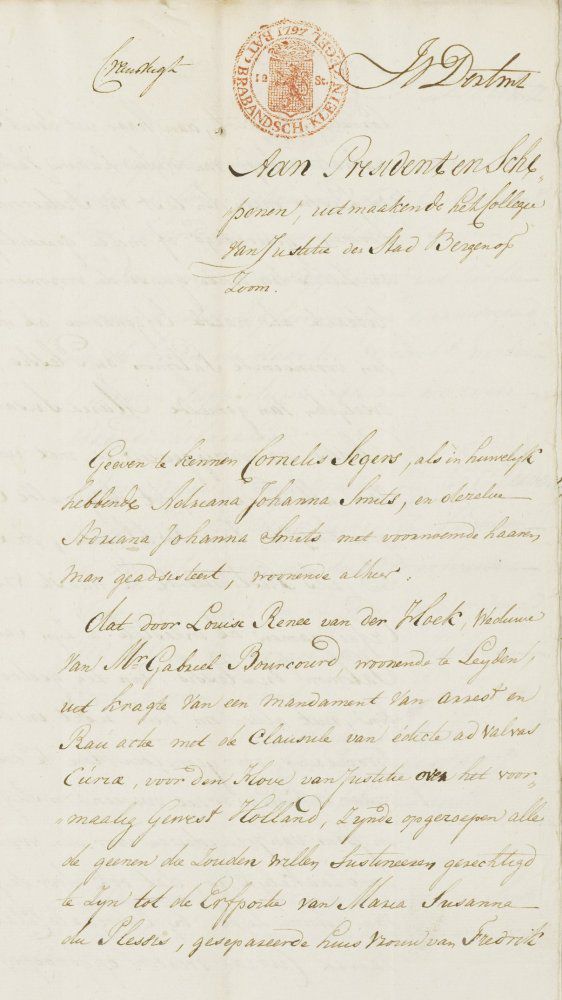 BAT: BRABANDSCH KLEIN ZEGEL 1797
12 St:
Aan President en Sche-
penen, uitmaakende het Collegie
van Justitie der Stad Bergen op
Zoom.
Geeven te kennen Cornelis Segers, als in huwelijk
hebbende Adriana Johanna Smits, en dezelve
Adriana Johanna Smits met voornoemde haaren
man geadsisteert, woonende alhier.
Dat door Louise Renee van der Hoek, Weduwe
van Mr. Gabriel Bourcourd, woonende te Leyden,
uit kragte van een mandament van arrest en
Rau actie met de Clausule van edicte ad valvas
Curiæ, voor den Hove van Justitie over het voor-
maalig Gewest Holland, zynde opgeroepen alle
de geenen die zouden willen sustineeren geregtigd
te zyn tot de Erfportie van Maria Susanna
du Plessis, gesepareerde huisvrouw van Fredrik